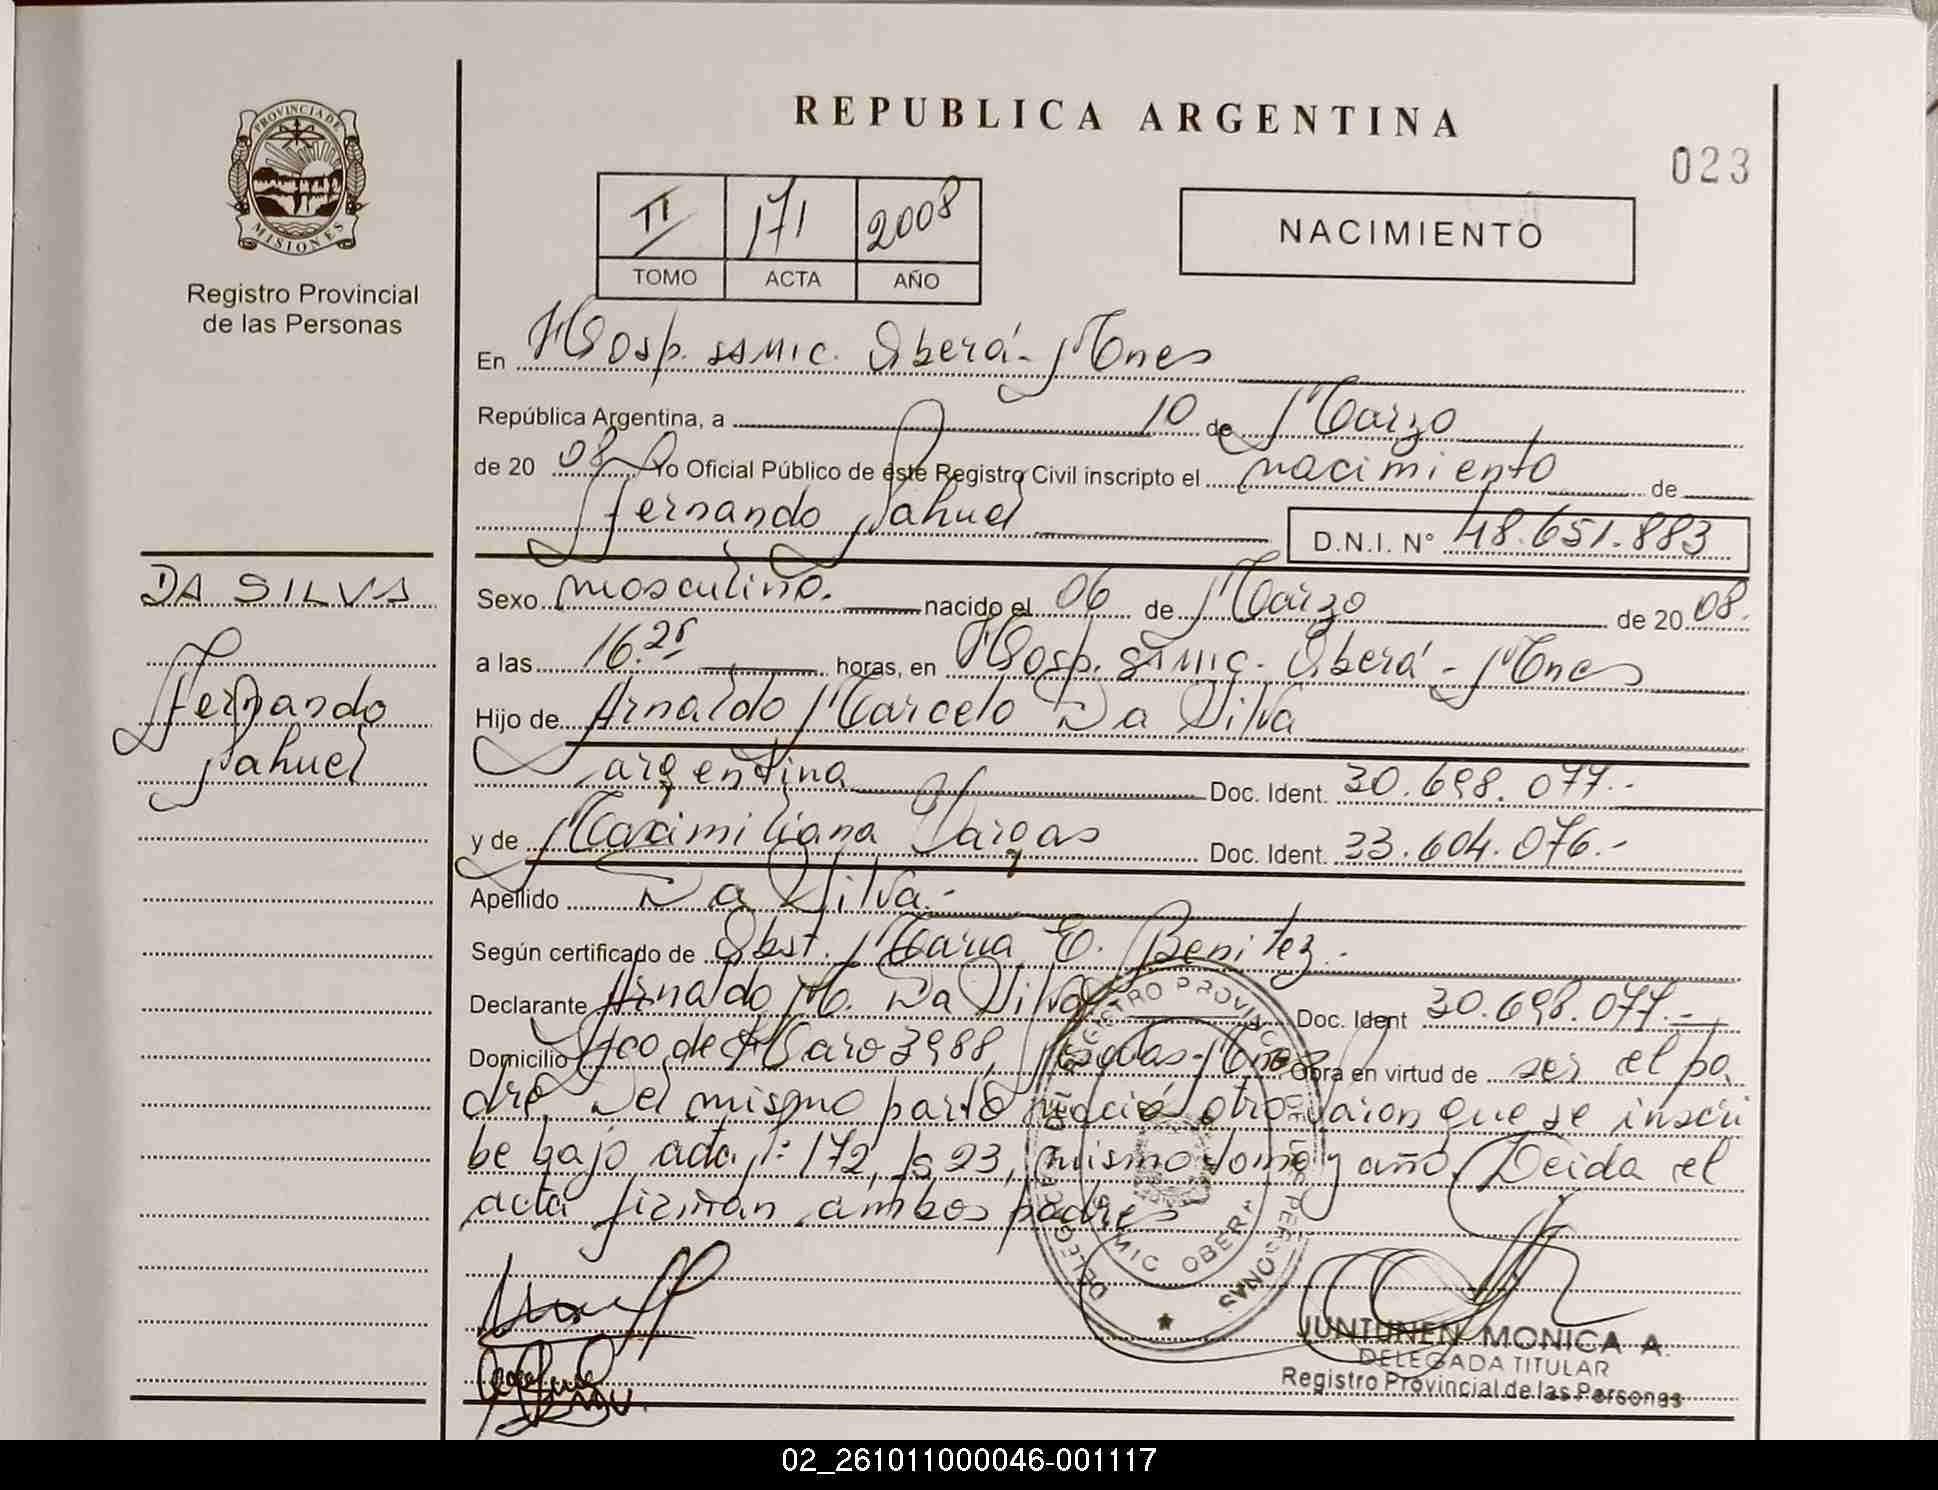 REPUBLICA ARGENTINA
023
PROVINCIA DE
MISIONES
Registro Provincial
de las Personas
II 171 2008
TOMO ACTA AÑO
NACIMIENTO
En Hosp. SAMIC. Oberá - Mnes
República Argentina, a 10 de Marzo
de 20 08 Yo Oficial Público de este Registro Civil inscripto el nacimiento de
Fernando Nahuel D.N.I. N° 48.651.883
DA SILVA
Fernando
Nahuel
Sexo masculino. nacido el 06 de Marzo de 20 08.
a las 16.25 horas, en Hosp. SAMIC. Oberá - Mnes
Hijo de Arnaldo Marcelo Da Silva
argentina Doc. Ident. 30.698.077.-
y de Maximiliana Vargas Doc. Ident. 33.604.076.-
Apellido Da Silva.-
Según certificado de Obst. Maria E. Benitez.-
Declarante Arnaldo M. Da Silva Doc. Ident 30.698.077.-
Domicilio Fco de Haro 3988, Posadas - Mnes Obra en virtud de ser el pa
dre. Del mismo parto nació otro varon que se inscri
be bajo acta 172, 23, mismo tomo y año. Leida el
acta firman ambos padres
REGISTRO PROVINCIAL DE LAS PERSONAS
DELEGACIÓN
SAMIC OBERA
JUNTUNEN MONICA A.
DELEGADA TITULAR
Registro Provincial de las Personas
02_261011000046-001117